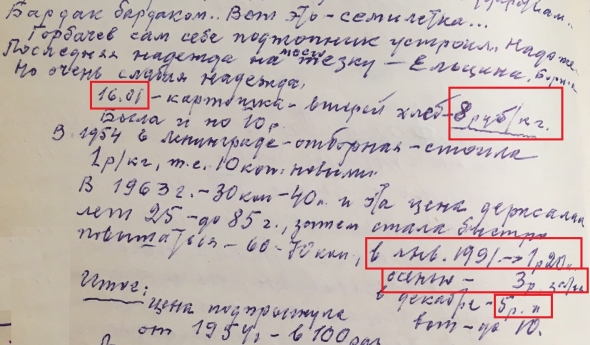 Бардак бардаком.. Вот это - семилетка...
Горбачев сам себе подтопник устроил. Надо же.
Последняя надежда на моего тёзку - Ельцина, Бориса
Но очень слабая надежда.
16.01 - картошка - второй хлеб - 8 руб/кг.
Была и по 10 р.
В 1954 в Ленинграде - отборная - стоила
1 р/кг, т.е. 10 коп. новыми
В 1963 г. - 30 коп - 40 к. и эта цена держалась
лет 25 - до 85 г., затем стала быстро
повышаться - 60 - 70 коп., в янв. 1991 -> 1 р 20 к.,
осенью - 3 р.
в декабре - 5 р. "
вот - до 10.
Итог:
цена подпрыгнула
от 1954 г - в 100 раз